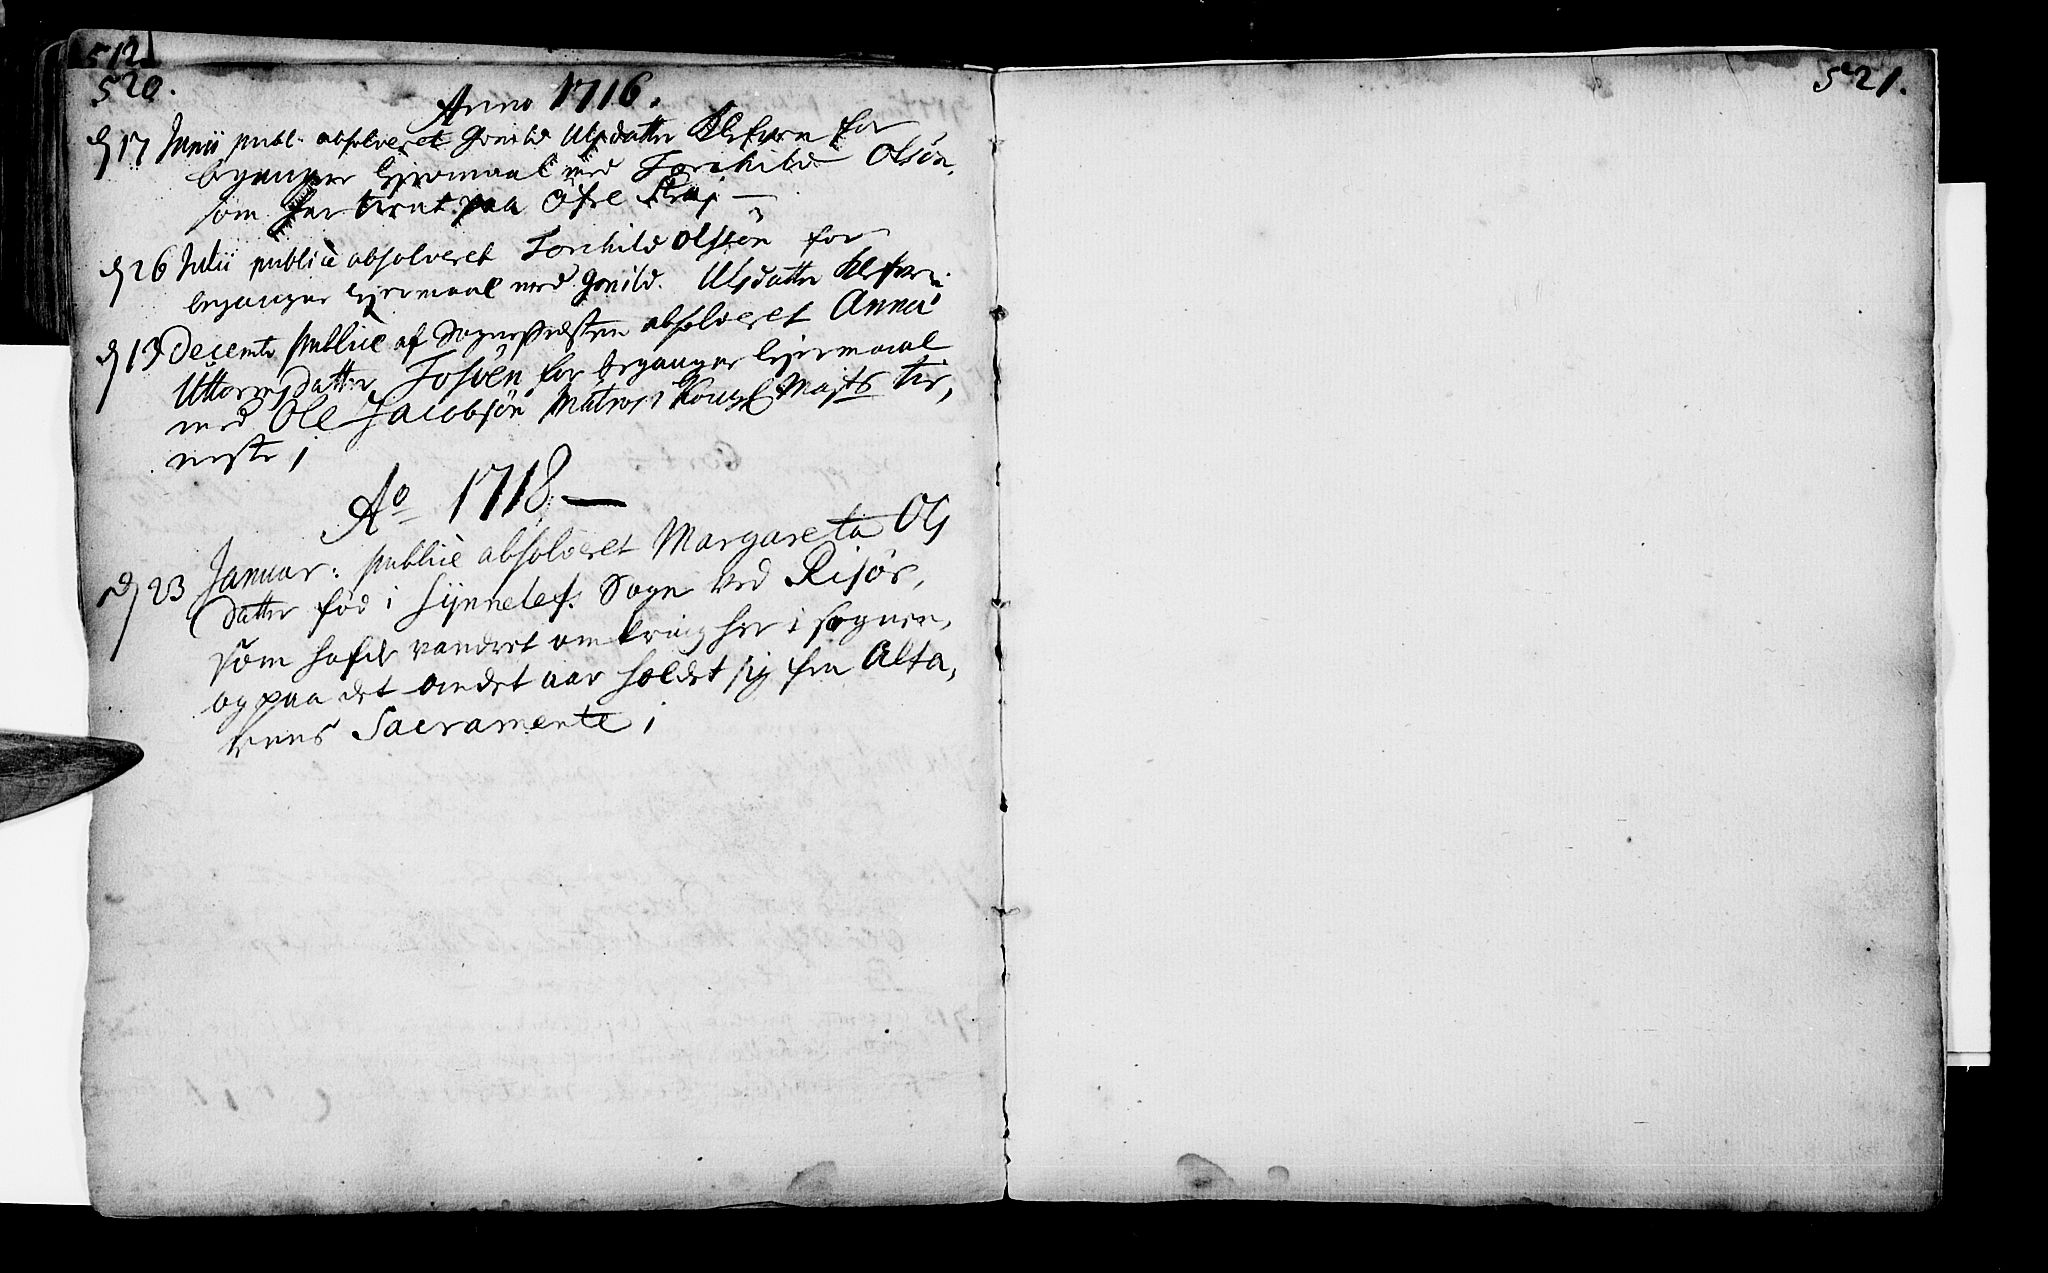 512
520.
Anno 1716.
d 17 Junii publ. absolveret Gonild Ulsdatter Klefven for
begangne lejermaal med Torchild Olsön,
som har tient paa Öfre
d 26 Julii publicè absolveret Torchild Olssön for
begangne lejermaal med Gonild Ulsdatter Klefven.
d 13 Decemb: publicè af Sognepræsten absolveret Anna
Uttormsdatter Tosven for begangne lejermaal
med Ole Jacobsön Matros i Kongl Majts tie,
neste /
Ao 1718 —
d 23 Januar: publicè absolveret Margareta Ols
datter fød i Synnelefs Sogn ved Risör,
som hafde vandret omkring her i Sognen,
og paa det andet aar holdet sig fra Alta,
rens Sacramente /
521.